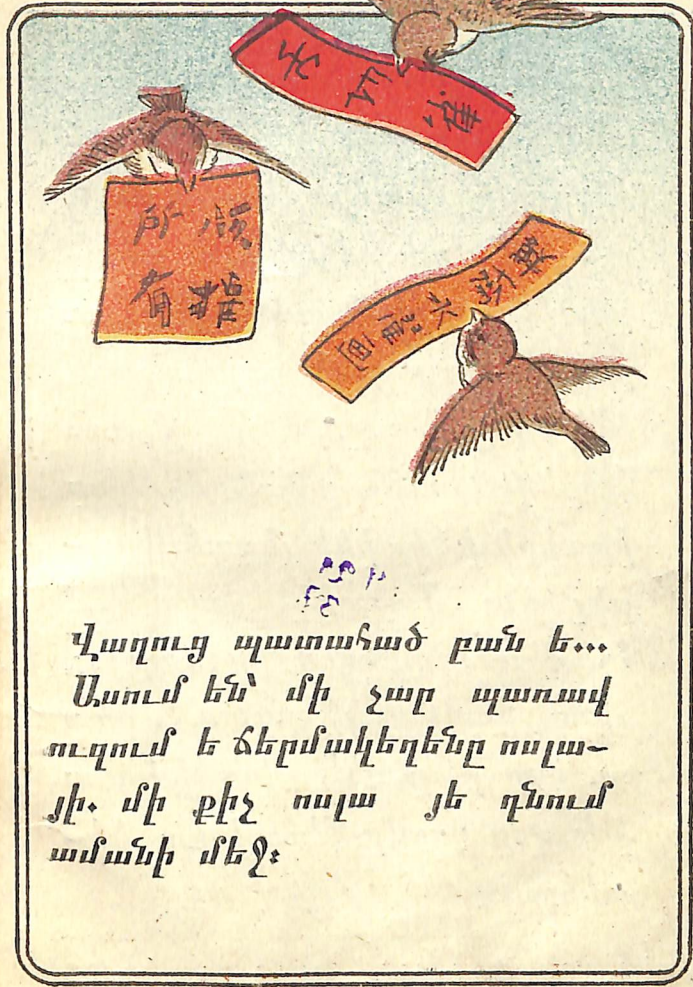 Վաղուց պատահած բան ե...
Ասում են՝ մի չար պառավ
ուզում ե ճերմակեղենը ոսլա-
յի. մի քիչ ոսլա յե դնում
ամանի մեջ: